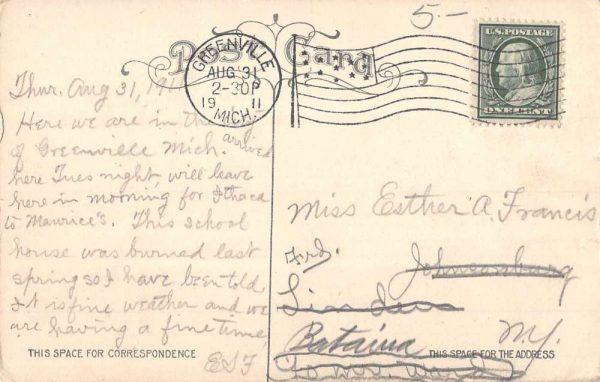 5.-
Post Card
GREENVILLE
AUG 31
2-30P
19 11
MICH.
U.S. POSTAGE
ONE CENT
Thur. Aug 31, 191
Here we are in the
of Greenville Mich. arrived
here Tues night, will leave
here in morning for Ithaca
to Maurice's. This school
house was burned last
spring so I have been told
It is fine weather and we
are having a fine time
ESF
THIS SPACE FOR CORRESPONDENCE
Miss Esther A. Francis
Frd.
Johnsonburg
Linden
Batavia N.Y.
THIS SPACE FOR THE ADDRESS